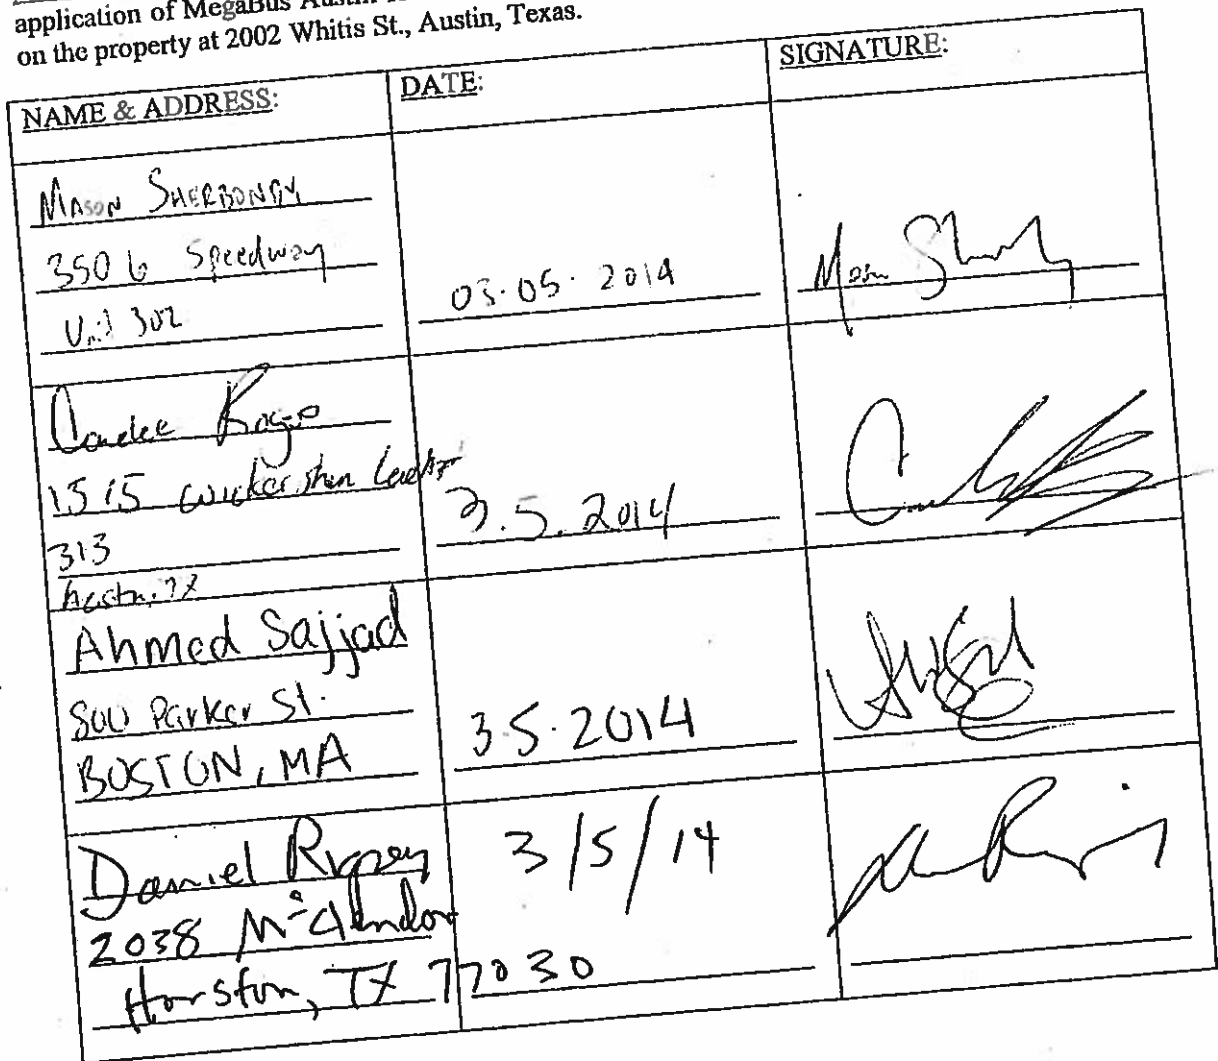 application of MegaBus Austin
on the property at 2002 Whitis St., Austin, Texas.
NAME & ADDRESS: DATE: SIGNATURE:
MASON SHERBONDY
3506 Speedway
Unit 302
03.05.2014
Mason
Candee
1515 Wickersham
313
Austin, TX
3.5.2014
Ahmed Sajjad
800 Parker St.
BOSTON, MA
3.5.2014
Daniel
2038
Houston, TX 77030
3/5/14